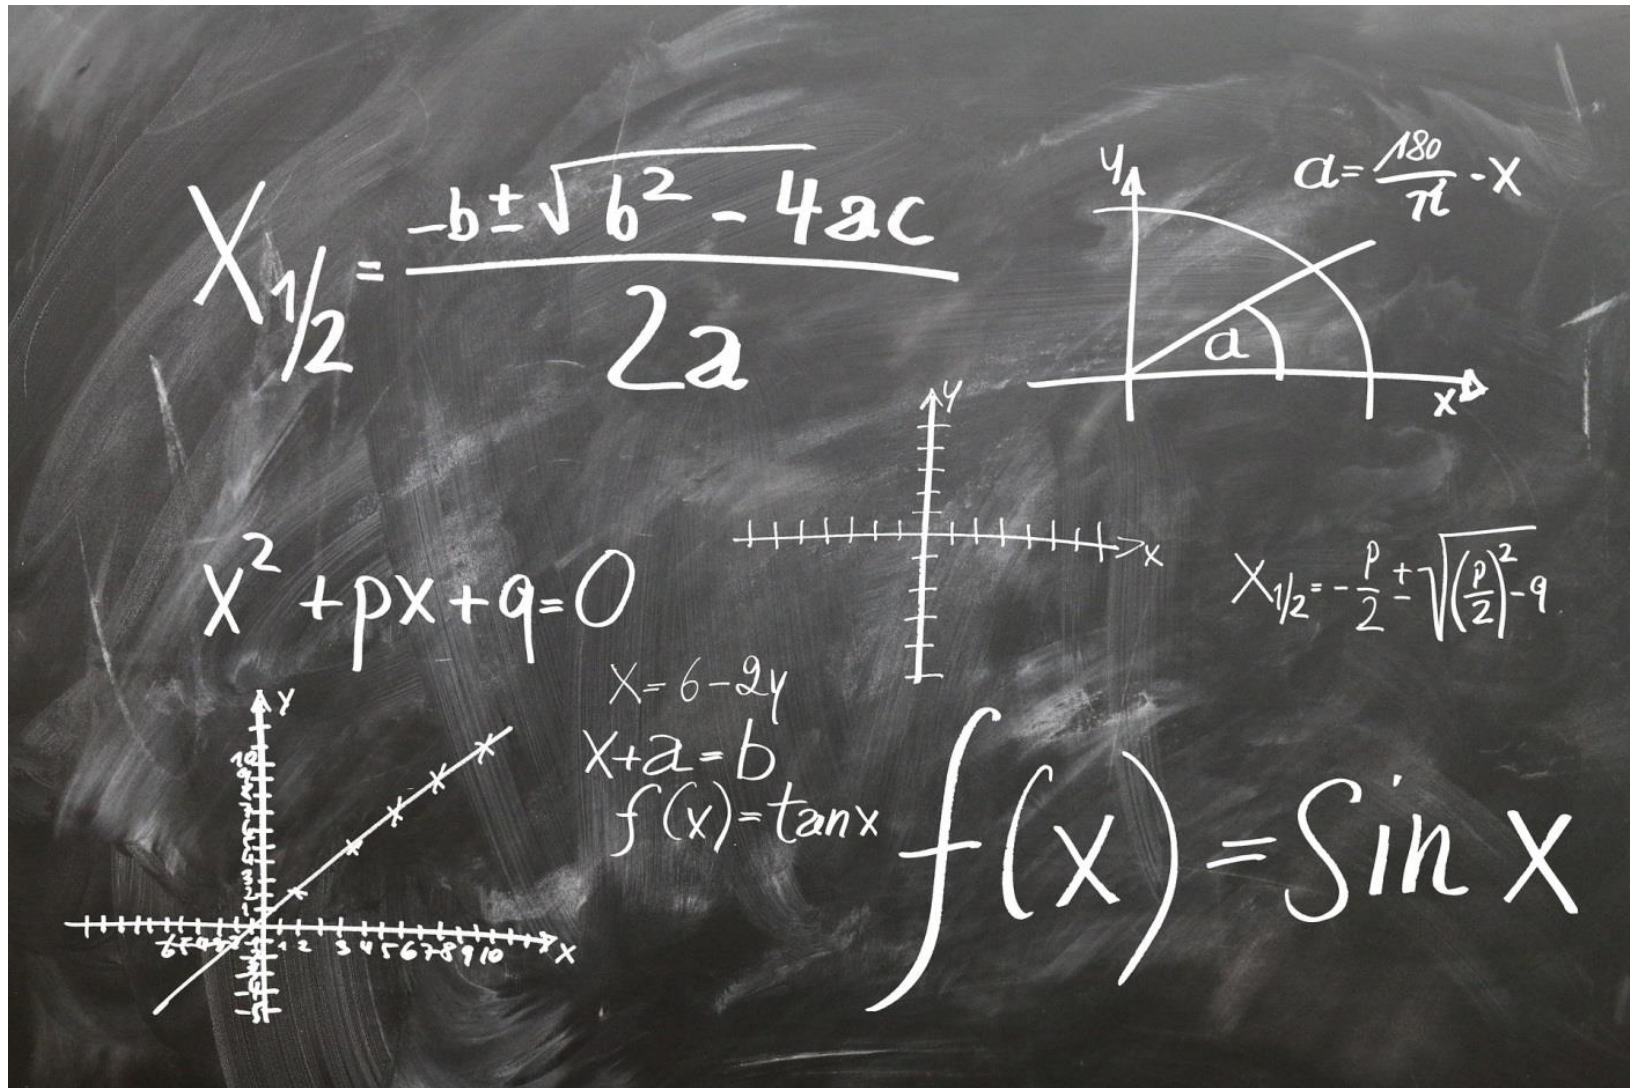 X1/2 = -b ± √b² - 4ac / 2a
y
a = 180/π - X
a
x
y
x
x² + px + q = 0
X1/2 = - p/2 ± √(p/2)² - q
x = 6 - 2y
x + a = b
f(x) = tan x
f(x) = Sin x
y
1 2 3 4 5 6 7 8 9 10 x